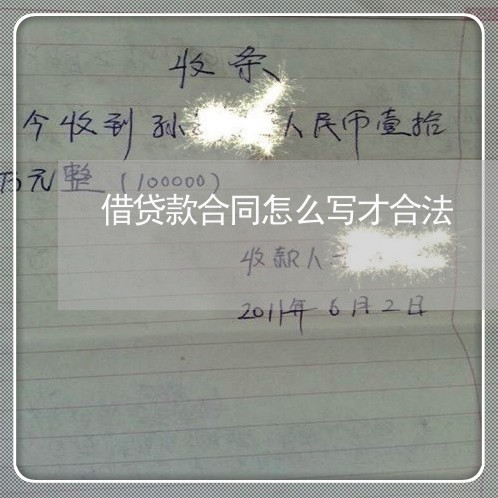 收条
今收到孙 人民币壹拾
万元整（100000）
借贷款合同怎么写才合法
收款人
2011年6月2日